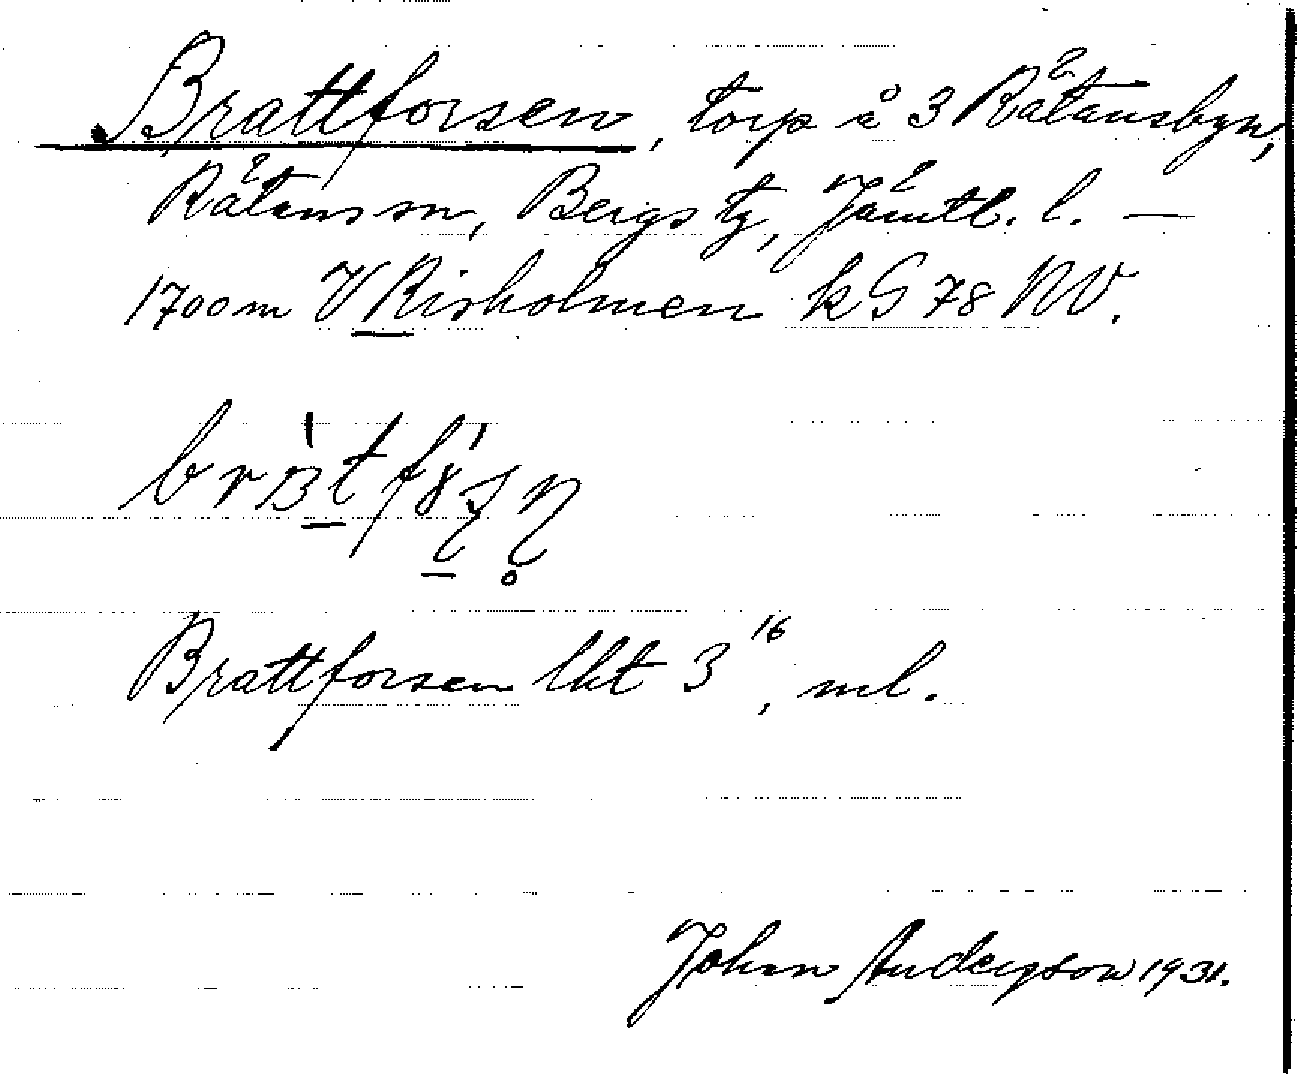 Brattforsen, torp å 3 Rätansbyn,
Rätans sn, Bergs tg, Jämtl. l. —
1700 m V Risholmen k G 78 NV.
Brattforsen lht 3¹⁶, ml.
John Anderson 1931.